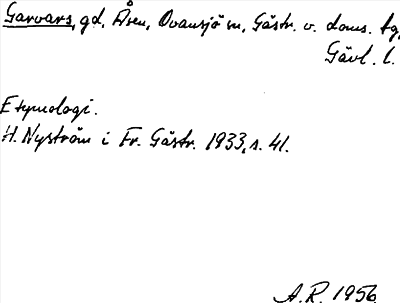 Garvars, gd, Åsen, Ovansjö sn, Gästr. v. doms. tg,
Gävl. l.
Etymologi.
H. Nyström i Fr. Gästr. 1933, s. 41.
A.R. 1956